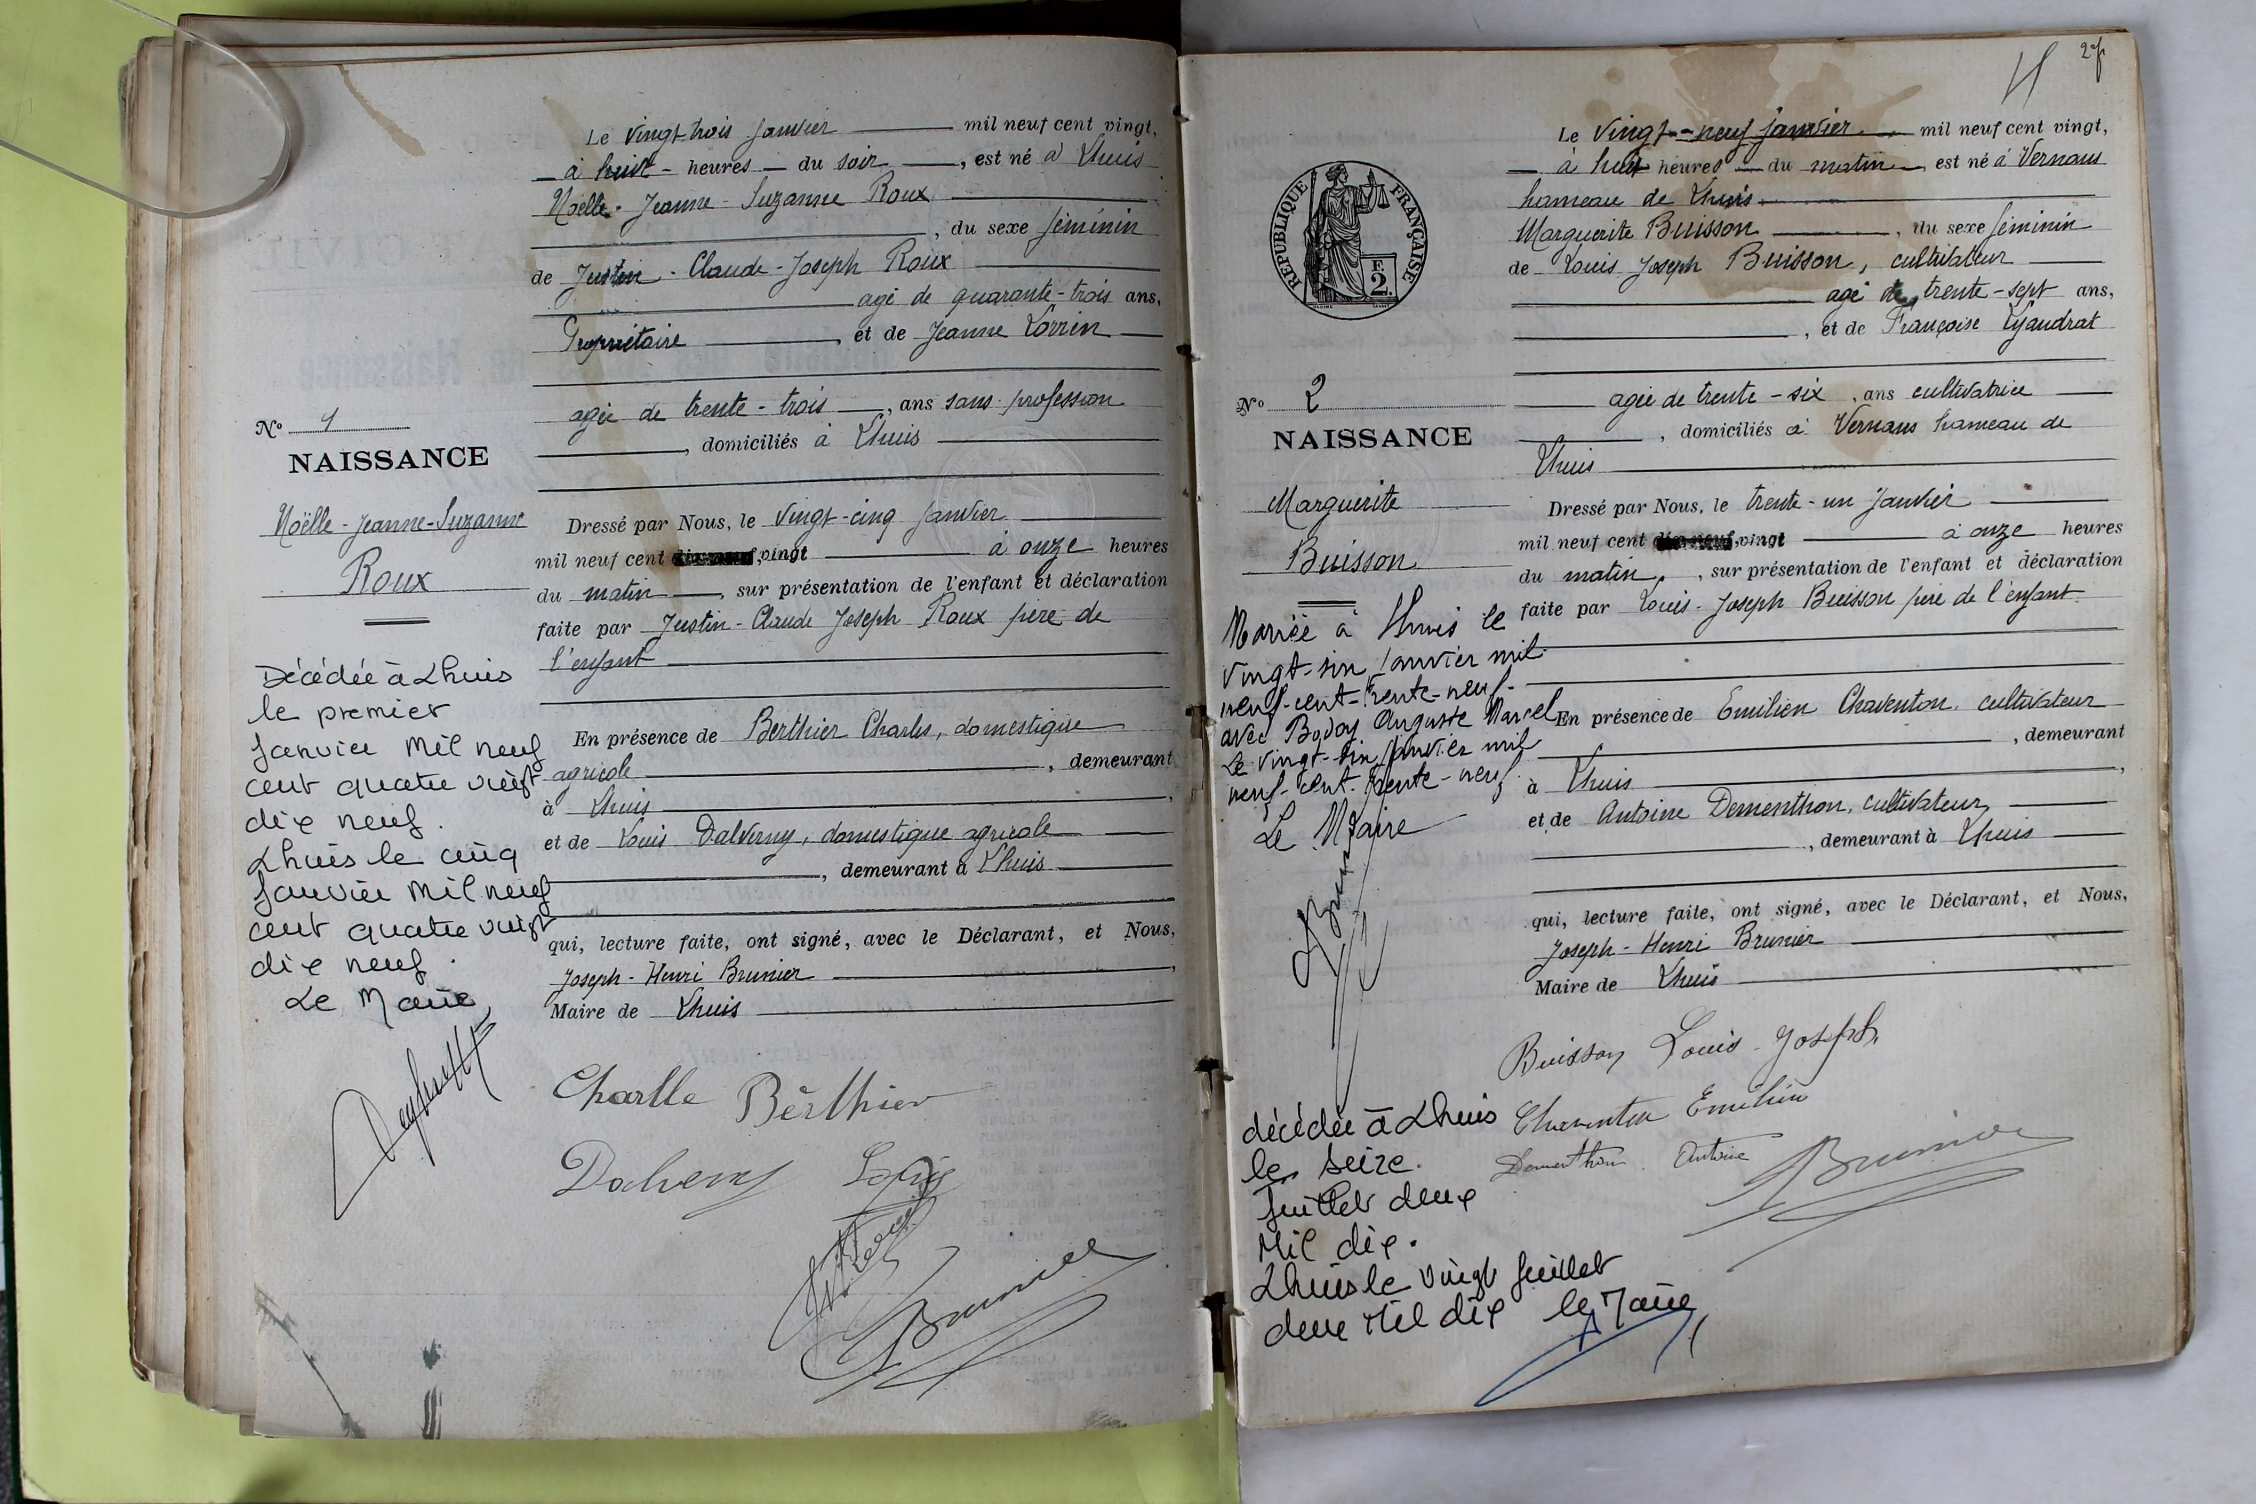 Le vingt-trois janvier mil neuf cent vingt,
à huit heures du soir, est né à Lhuis
Noëlle-Jeanne-Suzanne Roux
, du sexe féminin
de Justin-Claude-Joseph Roux
agé de quarante-trois ans,
Propriétaire, et de Jeanne Lorrin
agée de trente-trois, ans sans profession
, domiciliés à Lhuis
Nº 1
NAISSANCE
Noëlle-Jeanne-Suzanne
Roux
Dressé par Nous, le vingt-cinq janvier
mil neuf cent vingt à onze heures
du matin, sur présentation de l'enfant et déclaration
faite par Justin-Claude Joseph Roux père de
l'enfant
En présence de Berthier Charles, domestique
agricole, demeurant
à Lhuis,
et de Louis Dalverny, domestique agricole
, demeurant à Lhuis
qui, lecture faite, ont signé, avec le Déclarant, et Nous,
Joseph-Henri Brunier,
Maire de Lhuis
Décédée à Lhuis
le premier
janvier mil neuf
cent quatre vingt
dix neuf.
Lhuis le cinq
janvier mil neuf
cent quatre vingt
dix neuf.
Le Maire,
Charlle Bérthier
Louis
Brunier
2
REPUBLIQUE FRANÇAISE
F.
2.
Le vingt-neuf janvier mil neuf cent vingt,
à huit heures du matin, est né à Vernans
hameau de Lhuis
Marguerite Buisson, du sexe féminin
de Louis Joseph Buisson, cultivateur
agé de trente-sept ans,
, et de Françoise Lyaudrat
agée de trente-six, ans cultivatrice
, domiciliés à Vernans hameau de
Lhuis
Nº 2
NAISSANCE
Marguerite
Buisson
Dressé par Nous, le trente-un janvier
mil neuf cent vingt à onze heures
du matin, sur présentation de l'enfant et déclaration
faite par Louis-Joseph Buisson père de l'enfant
En présence de Emilien Chaventon, cultivateur
, demeurant
à Lhuis,
et de Antoine Dementhon, cultivateur
, demeurant à Lhuis
qui, lecture faite, ont signé, avec le Déclarant, et Nous,
Joseph-Henri Brunier
Maire de Lhuis
Mariée à Lhuis le
vingt-six janvier mil
neuf-cent-trente-neuf
avec Auguste Marcel
Le vingt-six janvier mil
neuf-cent-trente-neuf.
Le Maire
Brunier
Buisson Louis Joseph
Chaventon Emilien
Dementhon Antoine
Brunier
décédée à Lhuis
le seize
juillet deux
mil dix.
Lhuis le vingt juillet
deux mil dix le Maire,